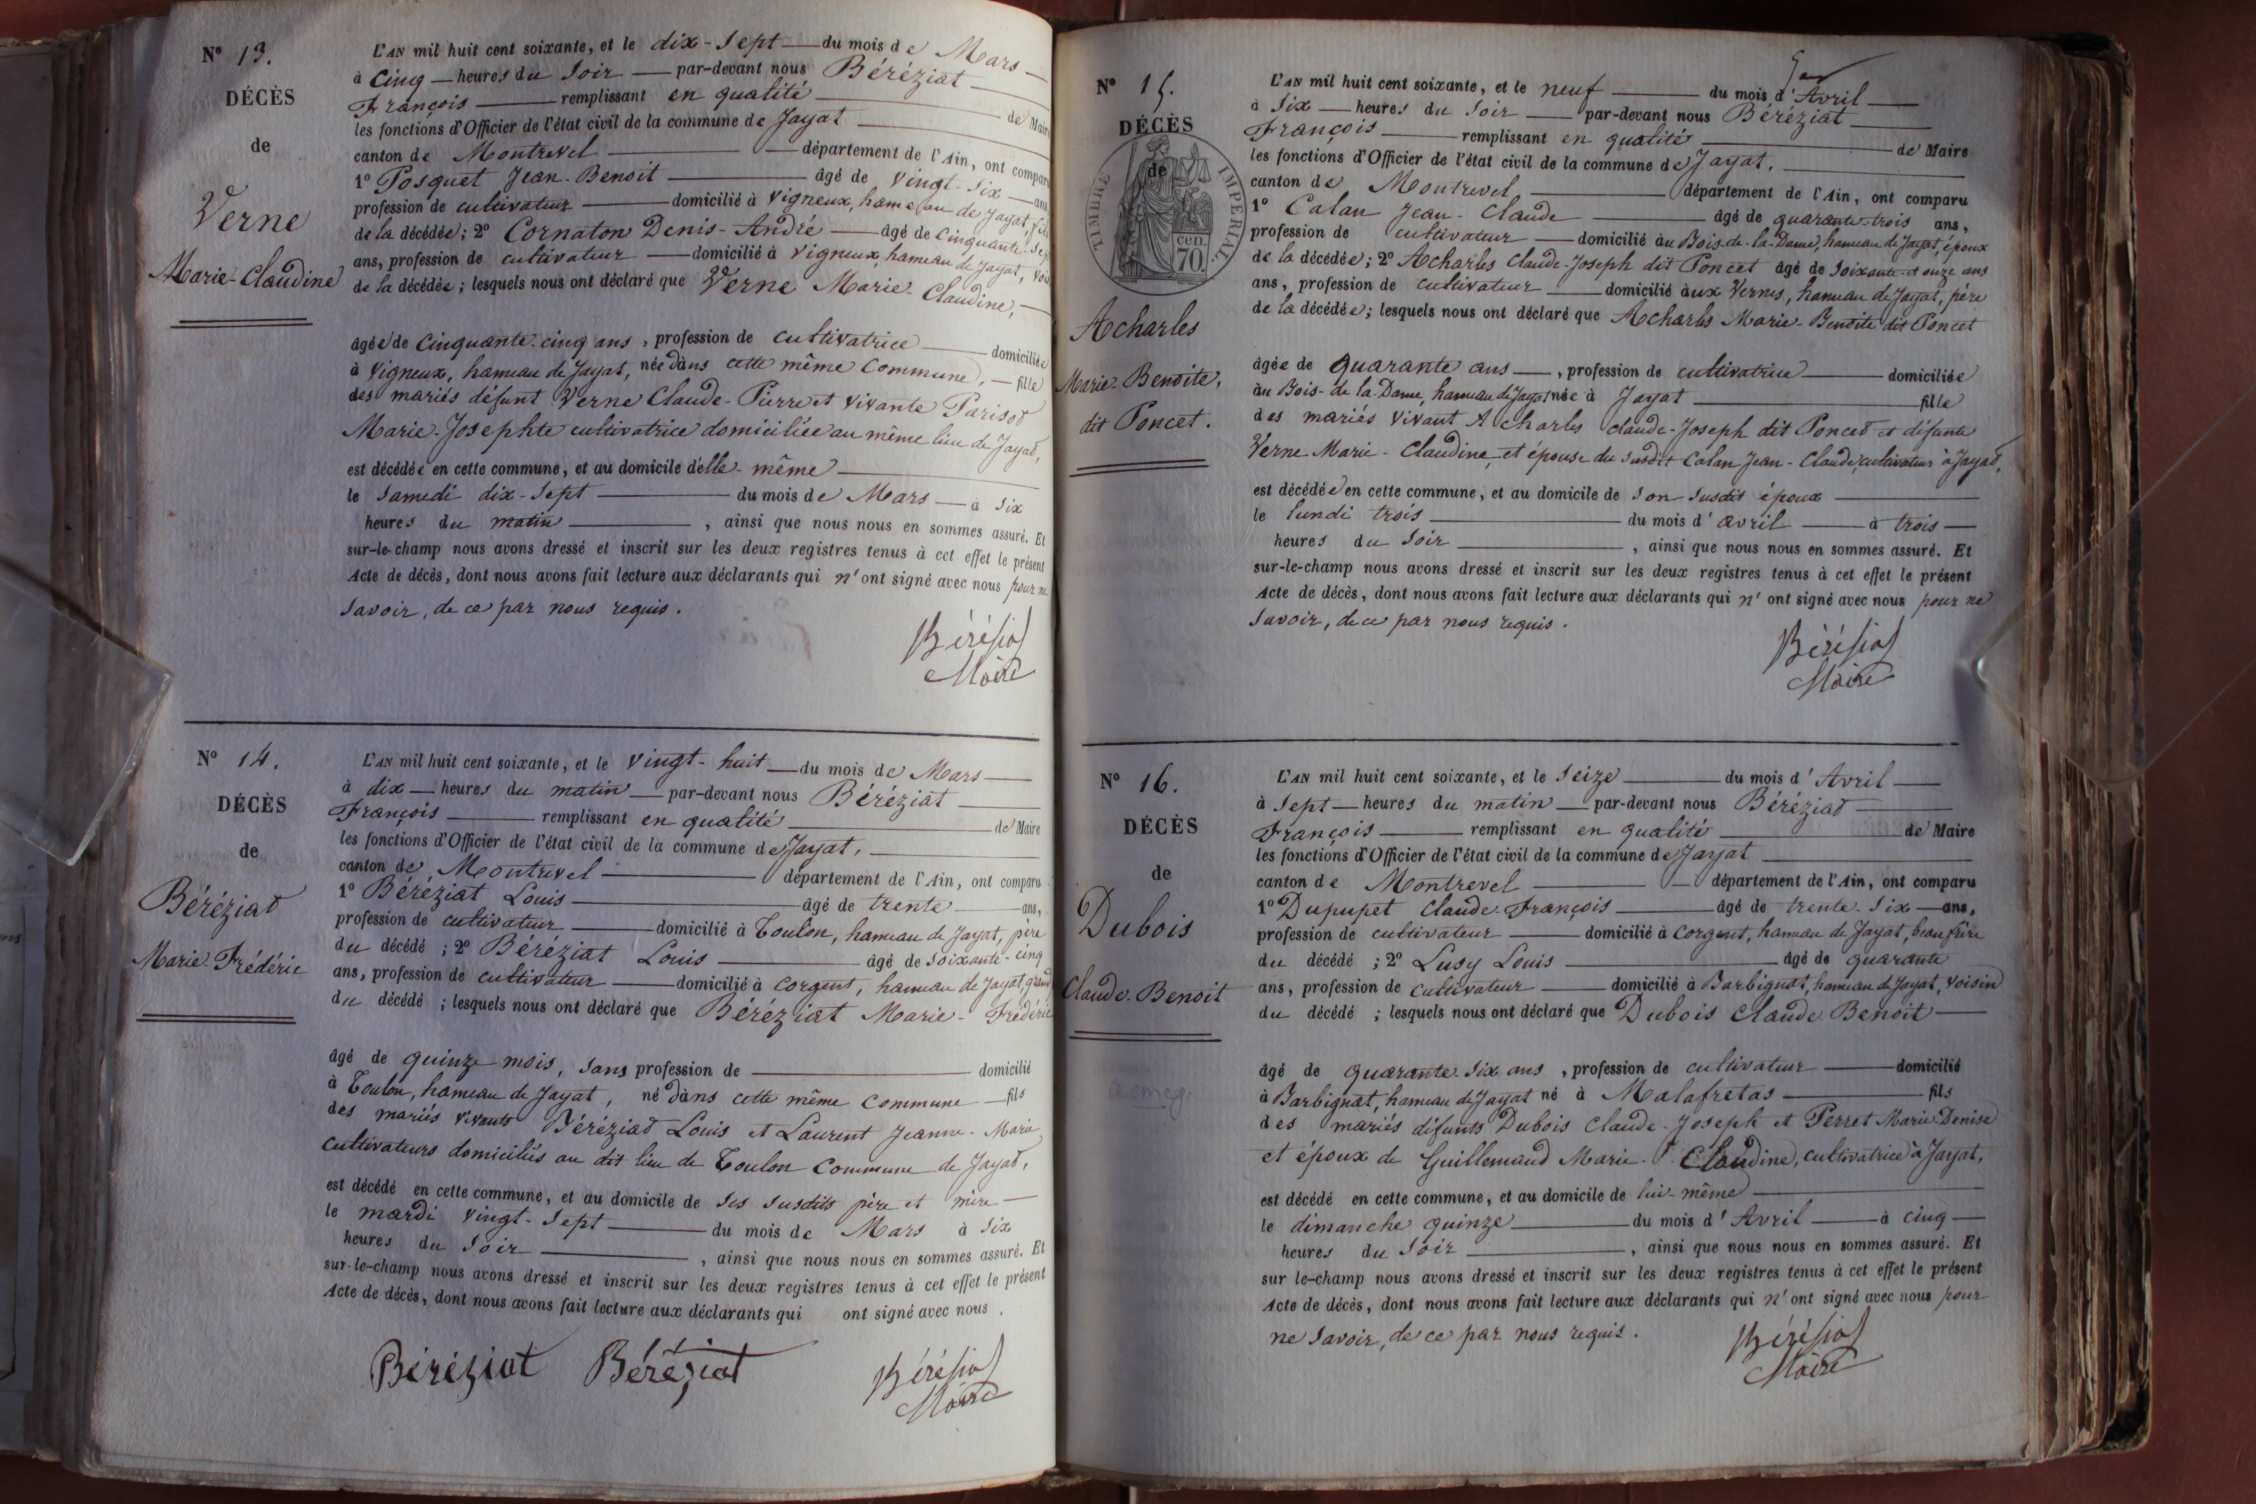 N° 13.
DÉCÈS
de
Verne
Marie-Claudine
L'AN mil huit cent soixante, et le dix-sept du mois de Mars
à cinq heures du soir par-devant nous Béréziat
François remplissant en qualité de Maire
les fonctions d'Officier de l'état civil de la commune de Jayat
canton de Montrevel département de l'Ain, ont comparu
1° Posquet Jean-Benoit âgé de vingt-six ans
profession de cultivateur domicilié à Vigneux, hameau de Jayat, fils
de la décédée; 2° Cornaton Denis-André âgé de cinquante-sept
ans, profession de cultivateur domicilié à Vigneux, hameau de Jayat, voisin
de la décédée; lesquels nous ont déclaré que Verne Marie-Claudine,
âgée de cinquante-cinq ans, profession de cultivatrice domiciliée
à Vigneux, hameau de Jayat, née dans cette même commune, fille
des mariés défunt Verne Claude-Pierre et vivante Parisot
Marie-Josephte cultivatrice domiciliée au même lieu de Jayat,
est décédée en cette commune, et au domicile d'elle-même
le samedi dix-sept du mois de Mars à six
heures du matin, ainsi que nous nous en sommes assuré. Et
sur-le-champ nous avons dressé et inscrit sur les deux registres tenus à cet effet le présent
Acte de décès, dont nous avons fait lecture aux déclarants qui n'ont signé avec nous pour ne
savoir, de ce par nous requis.
Bérésiat
Maire
N° 14.
DÉCÈS
de
Béréziat
Marie-Frédéric
L'AN mil huit cent soixante, et le vingt-huit du mois de Mars
à dix heures du matin par-devant nous Béréziat
François remplissant en qualité de Maire
les fonctions d'Officier de l'état civil de la commune de Jayat,
canton de Montrevel département de l'Ain, ont comparu
1° Béréziat Louis âgé de trente ans,
profession de cultivateur domicilié à Toulon, hameau de Jayat, père
du décédé; 2° Béréziat Louis âgé de soixante-cinq
ans, profession de cultivateur domicilié à Corgent, hameau de Jayat, grand
du décédé; lesquels nous ont déclaré que Béréziat Marie-Frédéric
âgé de quinze mois, sans profession de domicilié
à Toulon, hameau de Jayat, né dans cette même commune fils
des mariés vivants Béréziat Louis et Laurent Jeanne-Marie
cultivateurs domiciliés au dit lieu de Toulon commune de Jayat,
est décédé en cette commune, et au domicile de ses susdits père et mère
le mardi vingt-sept du mois de Mars à six
heures du soir, ainsi que nous nous en sommes assuré. Et
sur-le-champ nous avons dressé et inscrit sur les deux registres tenus à cet effet le présent
Acte de décès, dont nous avons fait lecture aux déclarants qui ont signé avec nous.
Béréziat Béréziat Bérésiat
Maire
N° 15.
DÉCÈS
de
TIMBRE IMPÉRIAL
70 cen.
Acharles
Marie-Benoite,
dit Poncet.
L'AN mil huit cent soixante, et le neuf du mois d'Avril
à six heures du soir par-devant nous Béréziat
François remplissant en qualité de Maire
les fonctions d'Officier de l'état civil de la commune de Jayat,
canton de Montrevel, département de l'Ain, ont comparu
1° Calan Jean-Claude âgé de quarante-trois ans,
profession de cultivateur domicilié au Bois-de-la-Dame, hameau de Jayat, époux
de la décédée; 2° Acharles Claude-Joseph dit Poncet âgé de soixante et onze ans
ans, profession de cultivateur domicilié aux Vernes, hameau de Jayat, père
de la décédée; lesquels nous ont déclaré que Acharles Marie-Benoite dit Poncet
âgée de quarante ans, profession de cultivatrice domiciliée
au Bois-de-la-Dame, hameau de Jayat née à Jayat fille
des mariés vivant Acharles Claude-Joseph dit Poncet et défunte
Verne Marie-Claudine, et épouse du susdit Calan Jean-Claude, cultivateur à Jayat,
est décédée en cette commune, et au domicile de son susdit époux
le lundi trois du mois d'avril à trois
heures du soir, ainsi que nous nous en sommes assuré. Et
sur-le-champ nous avons dressé et inscrit sur les deux registres tenus à cet effet le présent
Acte de décès, dont nous avons fait lecture aux déclarants qui n'ont signé avec nous pour ne
savoir, de ce par nous requis.
Bérésiat
Maire
N° 16.
DÉCÈS
de
Dubois
Claude-Benoit
L'AN mil huit cent soixante, et le seize du mois d'Avril
à sept heures du matin par-devant nous Béréziat
François remplissant en qualité de Maire
les fonctions d'Officier de l'état civil de la commune de Jayat
canton de Montrevel département de l'Ain, ont comparu
1° Dupupet Claude-François âgé de trente-six ans,
profession de cultivateur domicilié à Corgent, hameau de Jayat, beau frère
du décédé; 2° Lusy Louis âgé de quarante
ans, profession de cultivateur domicilié à Barbignat, hameau de Jayat, voisin
du décédé; lesquels nous ont déclaré que Dubois Claude Benoit
âgé de quarante-six ans, profession de cultivateur domicilié
à Barbignat, hameau de Jayat né à Malafretas fils
des mariés défunts Dubois Claude-Joseph et Perret Marie-Denise
et époux de Guillemaud Marie-Claudine, cultivatrice à Jayat,
est décédé en cette commune, et au domicile de lui-même
le dimanche quinze du mois d'Avril à cinq
heures du soir, ainsi que nous nous en sommes assuré. Et
sur le-champ nous avons dressé et inscrit sur les deux registres tenus à cet effet le présent
Acte de décès, dont nous avons fait lecture aux déclarants qui n'ont signé avec nous pour
ne savoir, de ce par nous requis.
Bérésiat
Maire